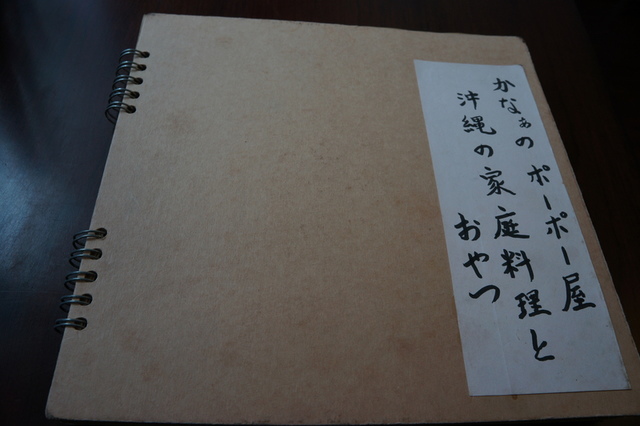 かなぁの ポーポー屋
沖縄の家庭料理と
おやつ